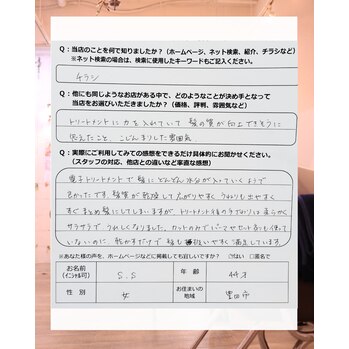 Q：当店のことを何で知りましたか？（ホームページ、ネット検索、紹介、チラシなど）
※ネット検索の場合は、検索に使用したキーワードもご記入ください。
チラシ
Q：他にも同じようなお店がある中で、どのようなことが決め手となって
当店をお選びいただきましたか？（価格、評判、雰囲気など）
トリートメントに力を入れていて 髪の質が向上できそうに
思えたこと、こじんまりした雰囲気
Q：実際にご利用してみての感想をできるだけ具体的にお聞かせください。
（スタッフの対応、他店との違いなど率直な感想）
電子トリートメントで髪にどんどん水分が入っていくようで
良かったです。髪質が乾燥して広がりやすく うねりも出やすく
すぐまとめ髪にしてしまいますが、トリートメント後のカラダは柔らかく
サラサラで うれしくなりました。カットのみで パーマやセット剤も使って
いないのに、乾かすだけで 髪も扱いやすく 満足しています。
※あなた様の声を、ホームページなどに掲載しても宜しいですか？ ☑はい □匿名で
お名前
（イニシャル可）
S.S
年 齢
44才
性 別
女
お住まいの
地域
豊田市